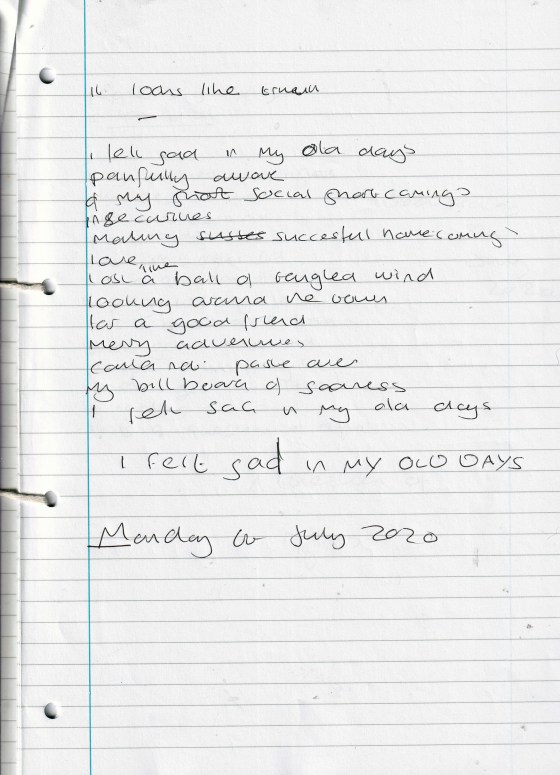 It looks like
I felt sad in my old days
painfully aware
of my short social shortcomings
insecurities
making succesful homecomings
love
like
lost a ball of tangled wind
looking around the town
for a good friend
merry adventures
could not paste over
my billboard of sadness
I felt sad in my old days
I felt sad in MY OLD DAYS
Monday July 2020